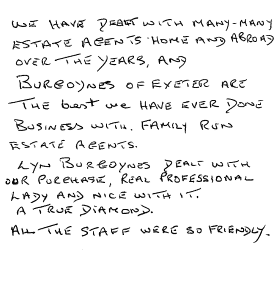 WE HAVE DEALT WITH MANY-MANY
ESTATE AGENTS HOME AND ABROAD
OVER THE YEARS, AND
BURGOYNES OF EXETER ARE
THE best we HAVE EVER DONE
BUSINESS WITH. FAMILY RUN
ESTATE AGENTS.
LYN BURGOYNES DEALT WITH
OUR PURCHASE, REAL PROFESSIONAL
LADY AND NICE WITH IT.
A TRUE DIAMOND.
ALL THE STAFF WERE SO FRIENDLY.